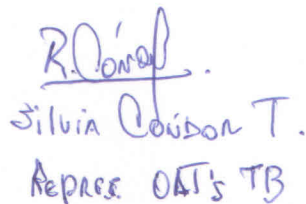 Silvia Cóndor T.
Repres OAT's TB